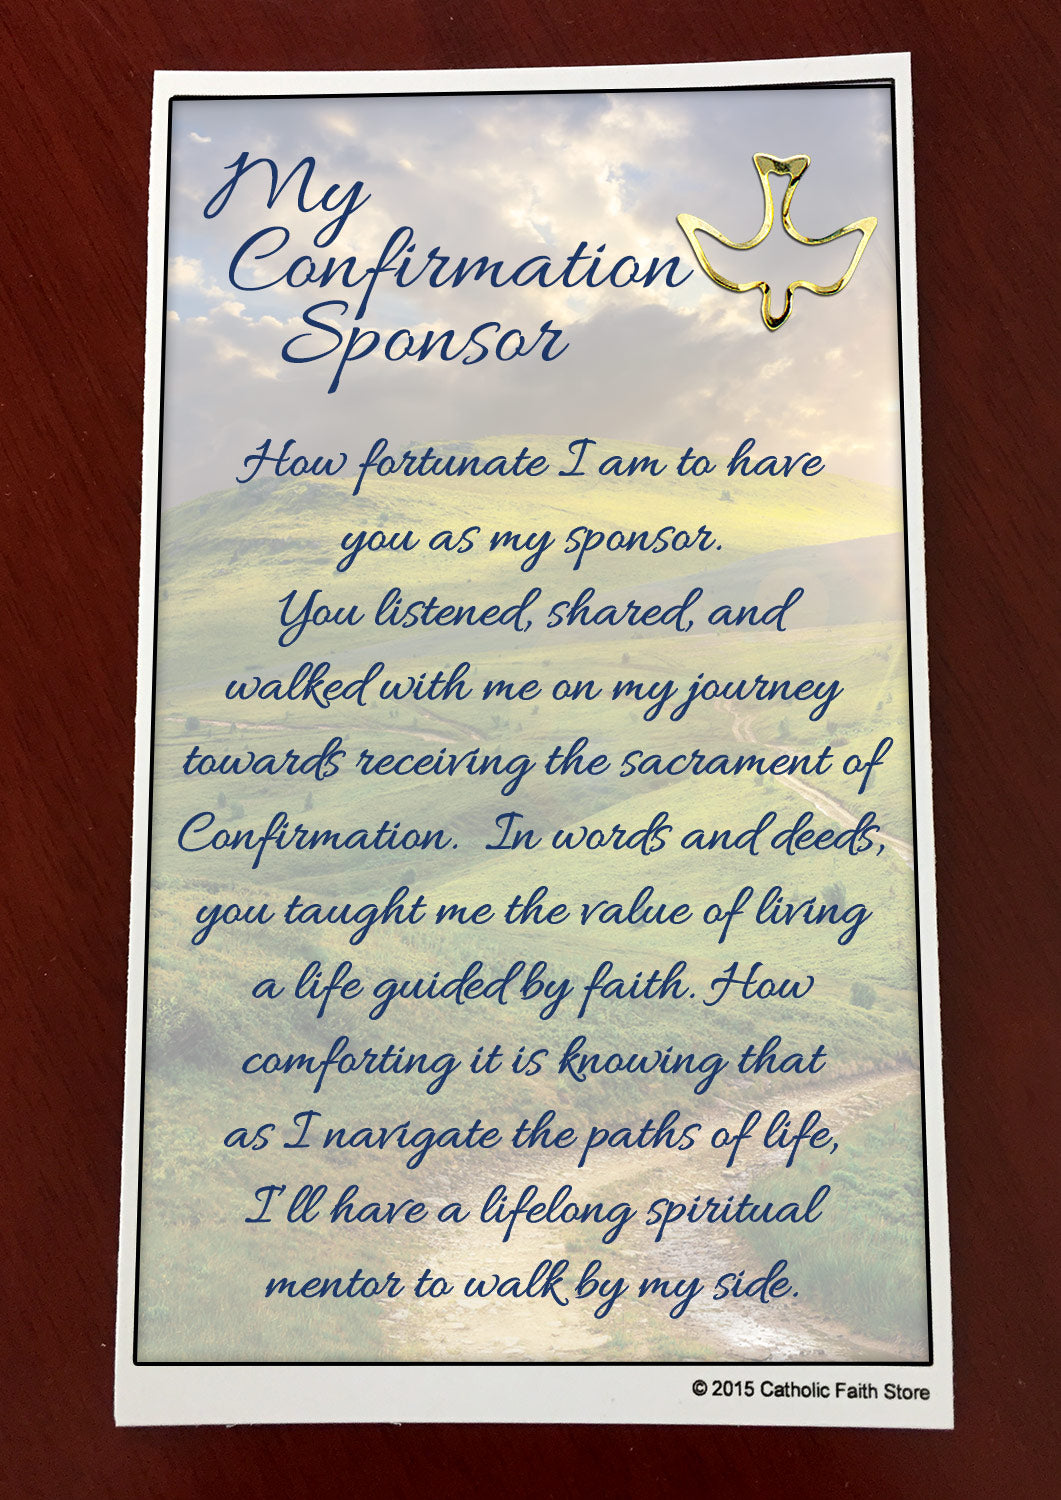 My
Confirmation
Sponsor
How fortunate I am to have
you as my sponsor.
You listened, shared, and
walked with me on my journey
towards receiving the sacrament of
Confirmation. In words and deeds,
you taught me the value of living
a life guided by faith. How
comforting it is knowing that
as I navigate the paths of life,
I'll have a lifelong spiritual
mentor to walk by my side.
© 2015 Catholic Faith Store